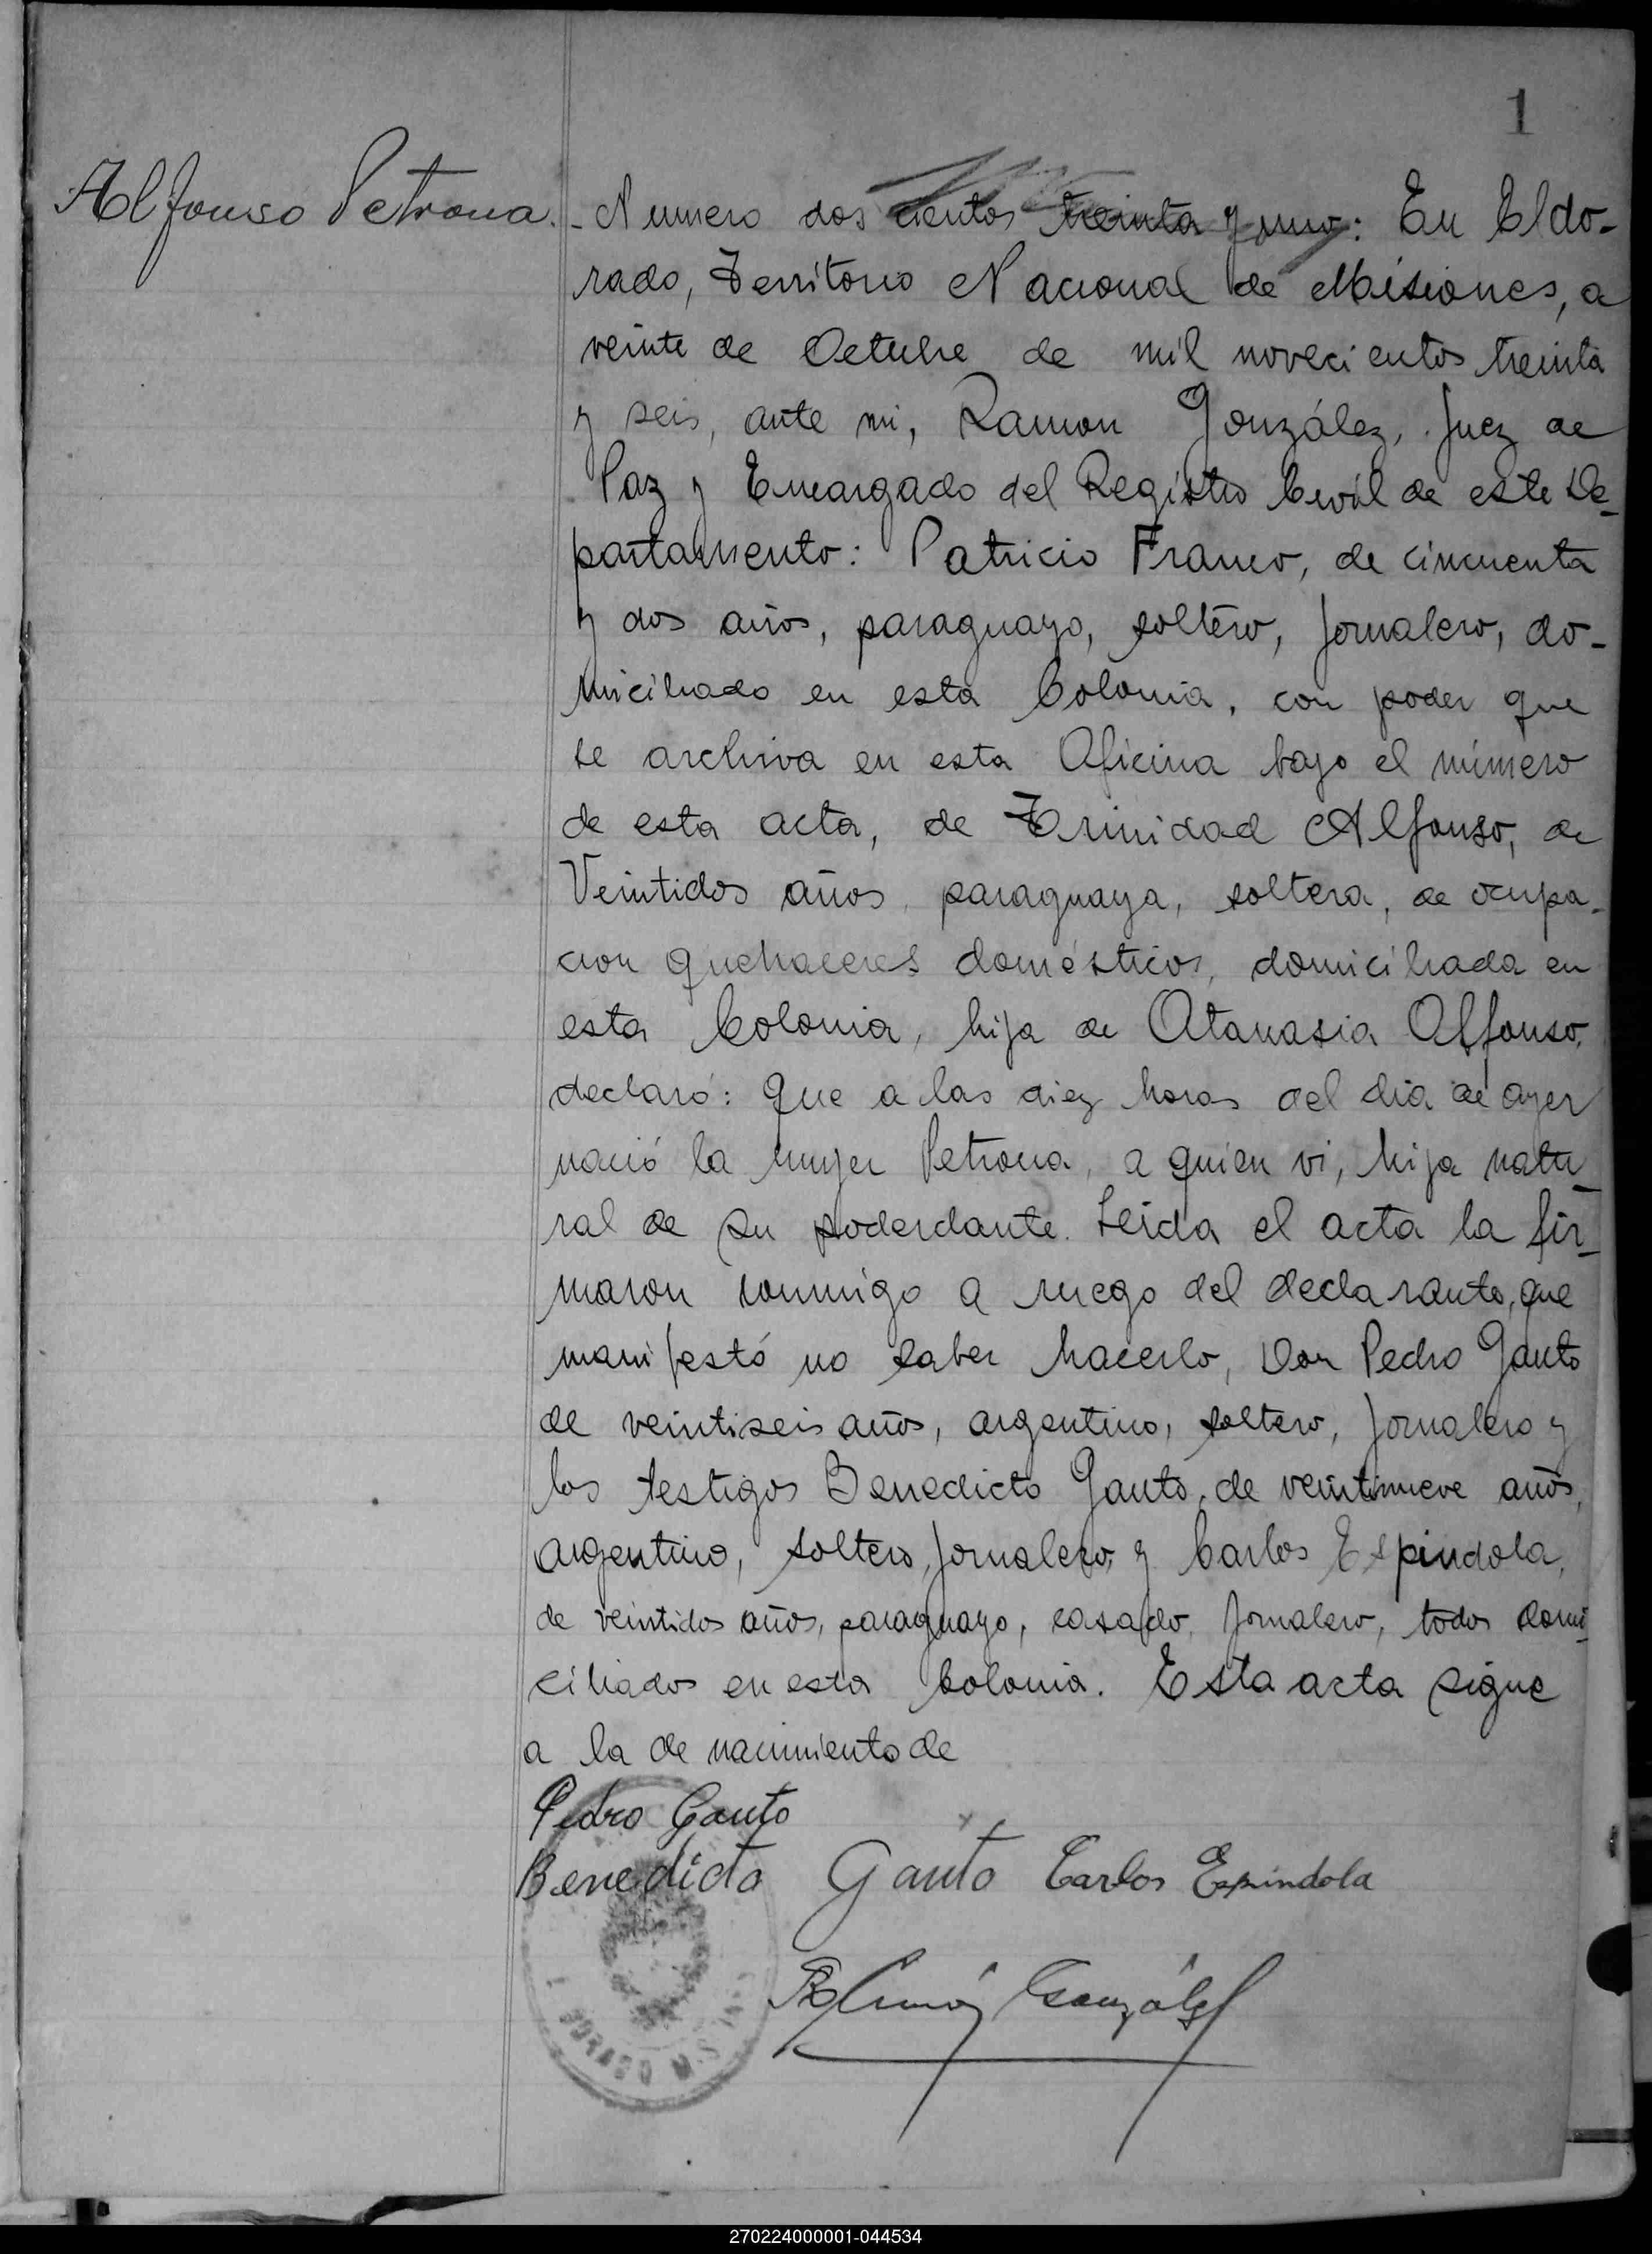 1
Alfonso Petrona.
- Numero dos cientos treinta y uno: En Eldo-
rado, Territorio Nacional de Misiones, a
veinte de Octubre de mil novecientos treinta
y seis, ante mi, Ramon González, Juez de
Paz y Encargado del Registro Civil de este De-
partamento: Patricio Franco, de cincuenta
y dos años, paraguayo, soltero, jornalero, do-
miciliado en esta Colonia, con poder que
se archiva en esta Oficina bajo el número
de esta acta, de Trinidad Alfonso, de
Veintidos años, paraguaya, soltera, de ocupa-
cion quehaceres domésticos, domiciliada en
esta Colonia, hija de Atanasia Alfonso,
declaró: Que a las diez horas del dia de ayer
nació la mujer Petrona, a quien vi, hija natu-
ral de su poderdante. Leida el acta la fir-
maron conmigo a ruego del declarante, que
manifestó no saber hacerlo, Don Pedro Gauto
de veintiseis años, argentino, soltero, jornalero y
los testigos Benedicto Gauto, de veintinueve años,
argentino, soltero, jornalero, y Carlos Espindola,
de veintidos años, paraguayo, casado, jornalero, todos domi-
ciliados en esta Colonia. Esta acta sigue
a la de nacimiento de
Pedro Gauto
Benedicto Gauto Carlos Espindola
Ramón González
270224000001-044534